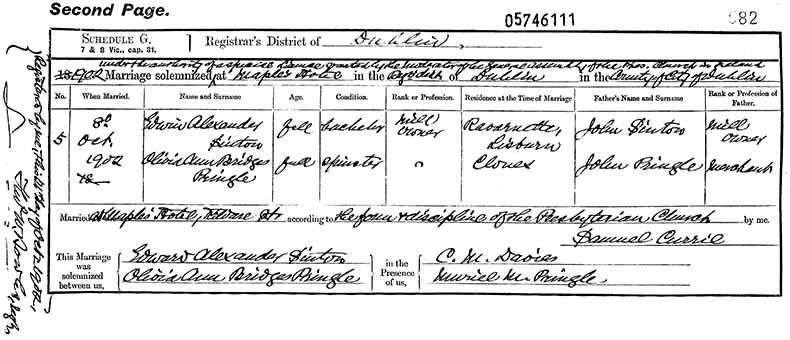 Second Page.
05746111
682
SCHEDULE G.
7 & 8 Vic., cap. 31.
Registrar's District of Dublin,
under the authority of a special license granted by the Moderator of the General Assembly of the Pres. Church in Ireland
18 1902 Marriage solemnized at Maple's Hotel in the of Dublin in the County of City of Dublin
No. When Married. Name and Surname Age. Condition. Rank or Profession. Residence at the Time of Marriage Father's Name and Surname Rank or Profession of Father.
5 8th Oct 1902 18 Edwin Alexander Sinton full bachelor mill owner Ravarnette, Lisburn John Sinton mill owner
Olivia Ann Bridges Pringle full spinster o Clones John Pringle merchant
Married at Maple's Hotel, Kildare St. according to the form & discipline of the Presbyterian Church by me.
Samuel Currie
This Marriage was solemnized between us,
Edward Alexander Sinton
Olivia Ann Bridges Pringle
in the Presence of us,
C. M. Davies
Muriel M. Pringle
Registered by me, this 10th day of Oct 1902,